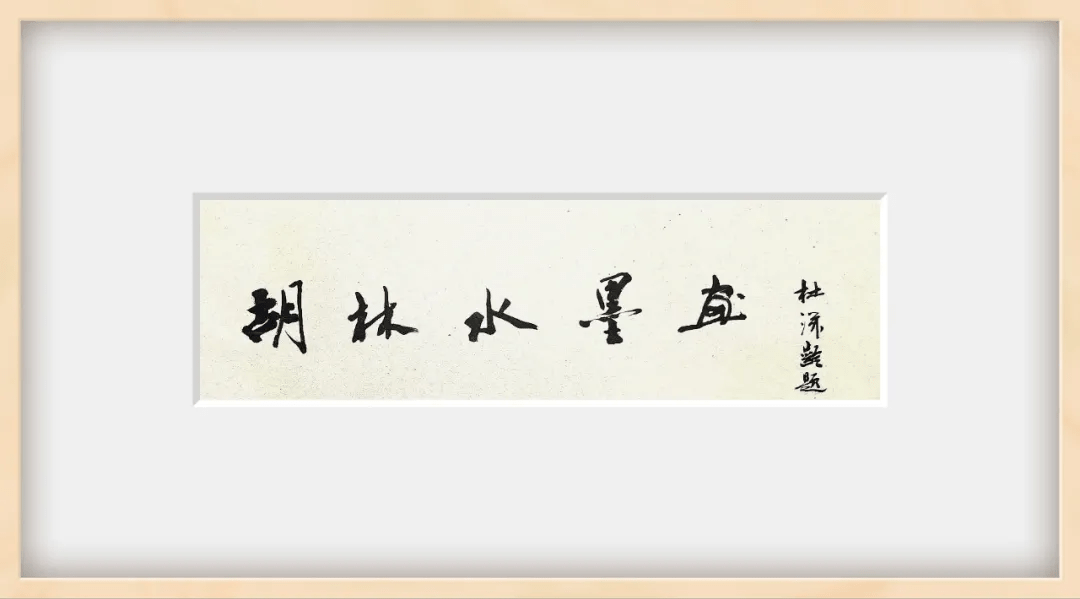 胡林水墨画
杜滋龄题